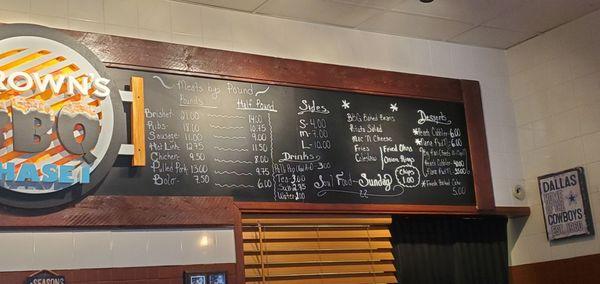 BROWN'S
BBQ
PHASE I
Meats by Pound
Pounds Half Pound
Brisket 21.00 14.00
Ribs 18.00 12.75
Sausage 11.00 9.00
Hot Link 12.75 11.50
Chicken 9.50 8.00
Pulled Pork 13.00 9.75
Bolo 7.50 6.00
Sides
S- 4.00
M- 7.00
L- 10.00
BBQ Baked Beans
Potato Salad
Mac N Cheese
Fries Fried Okra
Coleslaw Onion Rings
Chips 1.00
Drinks
3.00
Tea 2.00
Soda 2.75
Water 1.00
Soul Food Sunday
Desserts
Peach Cobbler 6.00
6.00
Peach Cobbler
Fresh Baked Cake
5.00
DALLAS
COWBOYS
SEASONS